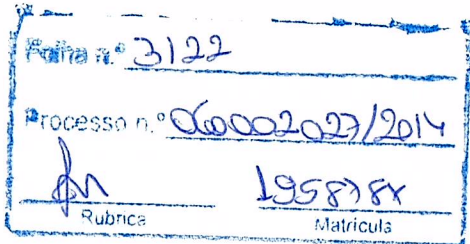 Folha n.º 3122
Processo n.º 060002027/2014
1958787X
Rubrica Matrícula